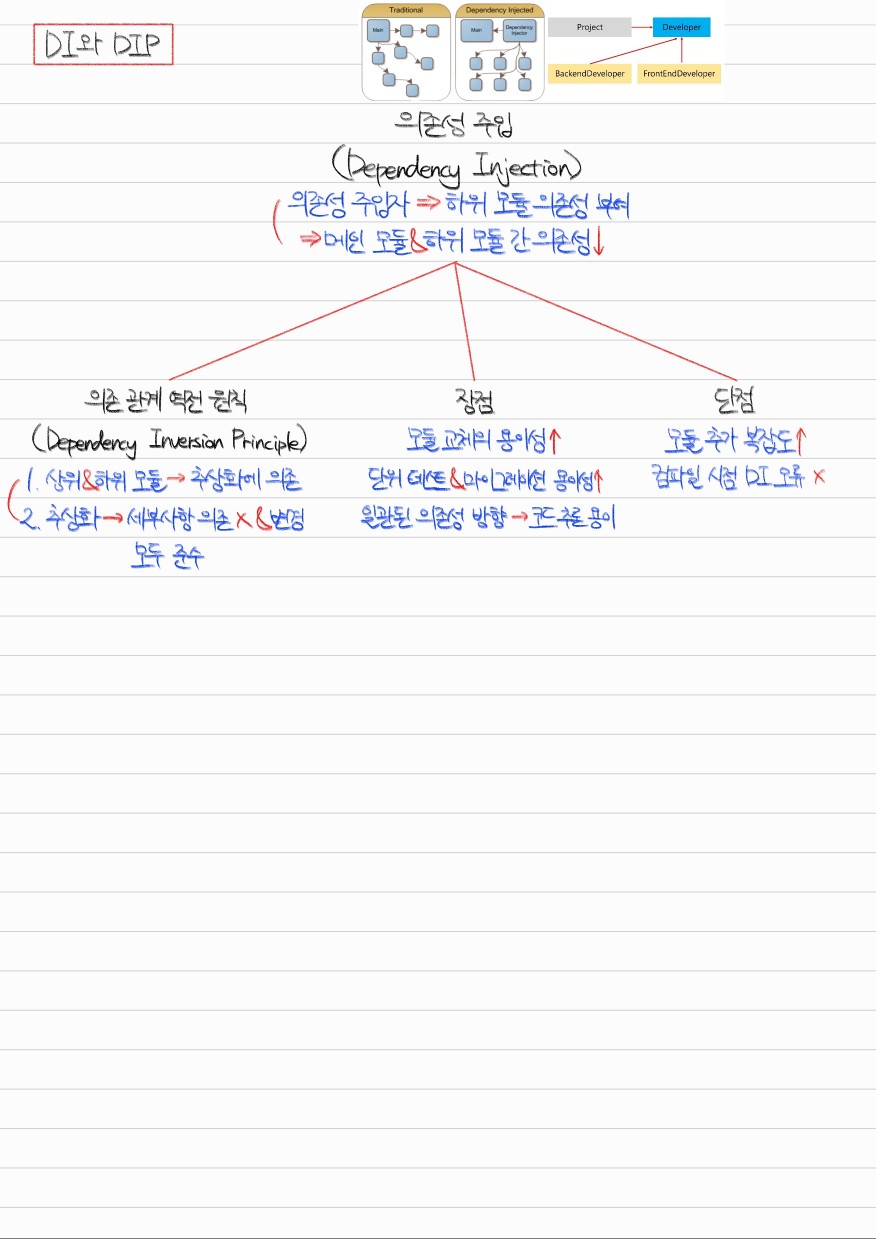 DI와 DIP
Traditional
Main
Dependency Injected
Main
Dependency Injector
Project
Developer
BackendDeveloper
FrontEndDeveloper
의존성 주입
(Dependency Injection)
의존성 주입자 ⇒ 하위 모듈 의존성 부여
⇒ 메인 모듈 & 하위 모듈 간 의존성↓
의존 관계 역전 원칙
(Dependency Inversion Principle)
1. 상위&하위 모듈 → 추상화에 의존
2. 추상화 → 세부사항 의존 X & 변경
모두 준수
장점
모듈 교체의 용이성↑
단위 테스트&마이그레이션 용이성↑
일관된 의존성 방향 → 코드 추론 용이
단점
모듈 추가 복잡도↑
컴파일 시점 DI 오류 X